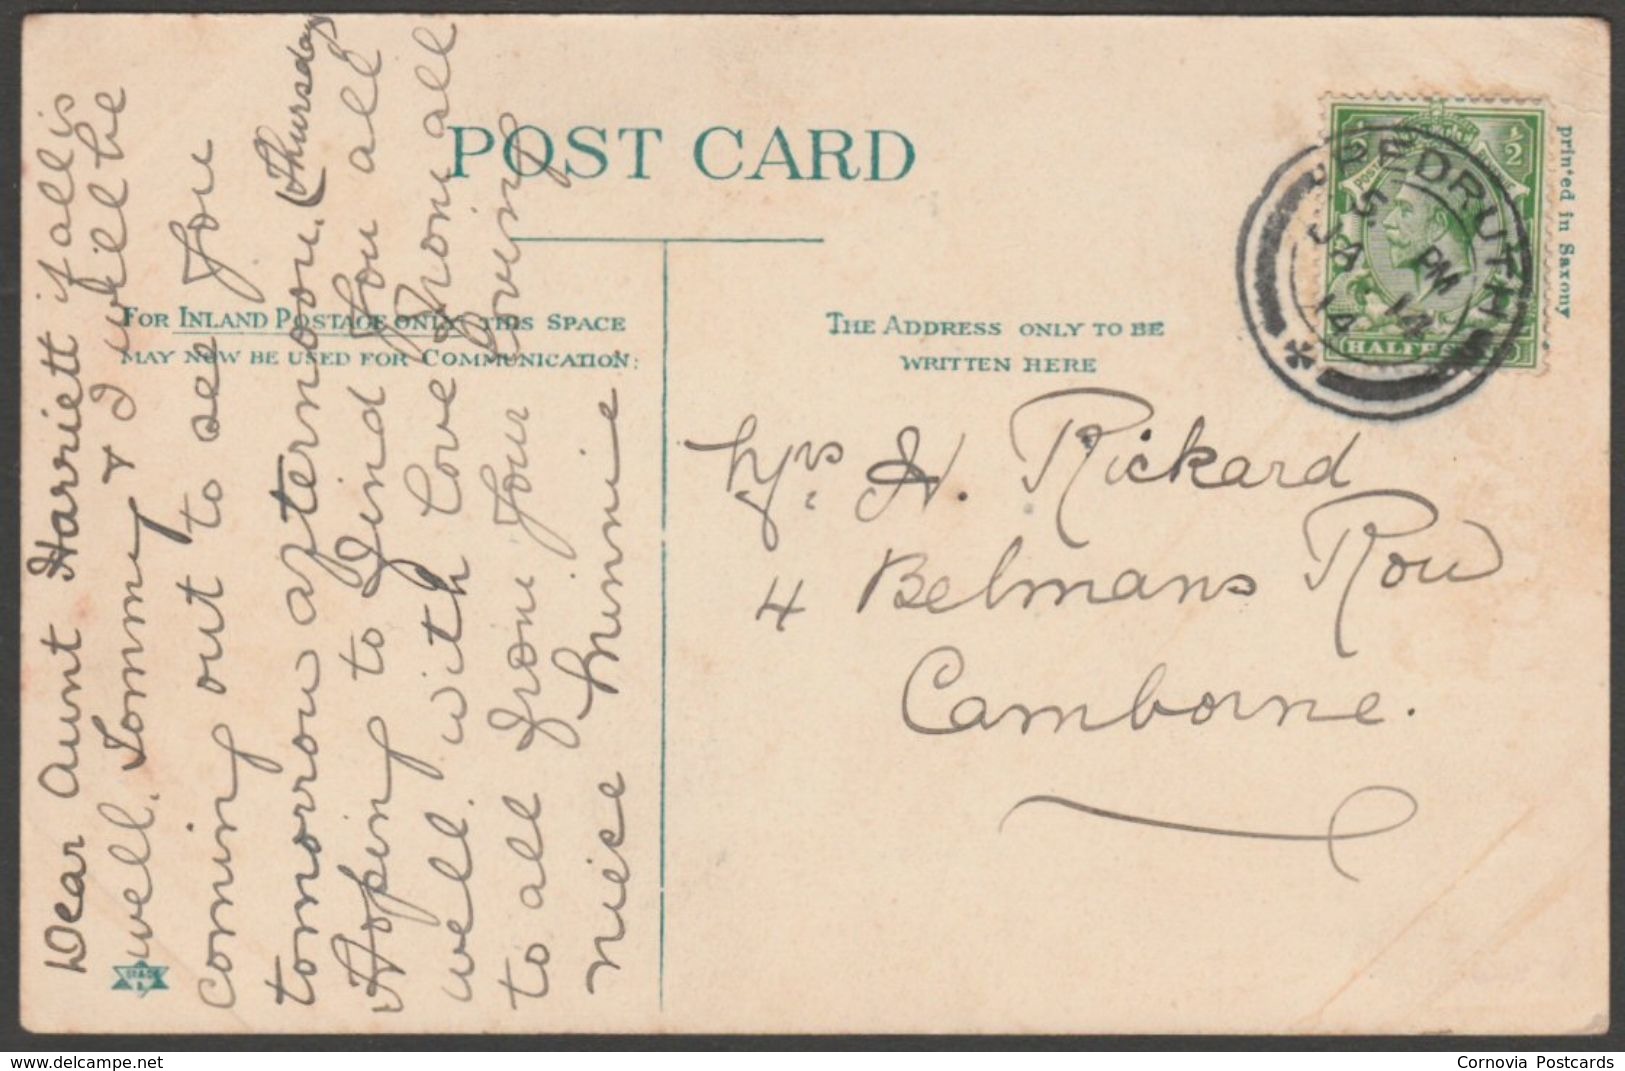 POST CARD
FOR INLAND POSTAGE ONLY THIS SPACE
MAY NOW BE USED FOR COMMUNICATION:
THE ADDRESS ONLY TO BE
WRITTEN HERE
printed in Saxony
REDRUTH
5 PM
JA 14
14
½ ½
HALFPENNY
Dear Aunt Harriett if all is
well. Tommy & I will be
coming out to see you
tomorrow afternoon. (Thursday
Hoping to find you all
well. with love from all
to all from your loving
niece Minnie
Mrs H. Rickard
4 Belmans Row
Camborne.
© delcampe.net
Cornovia Postcards